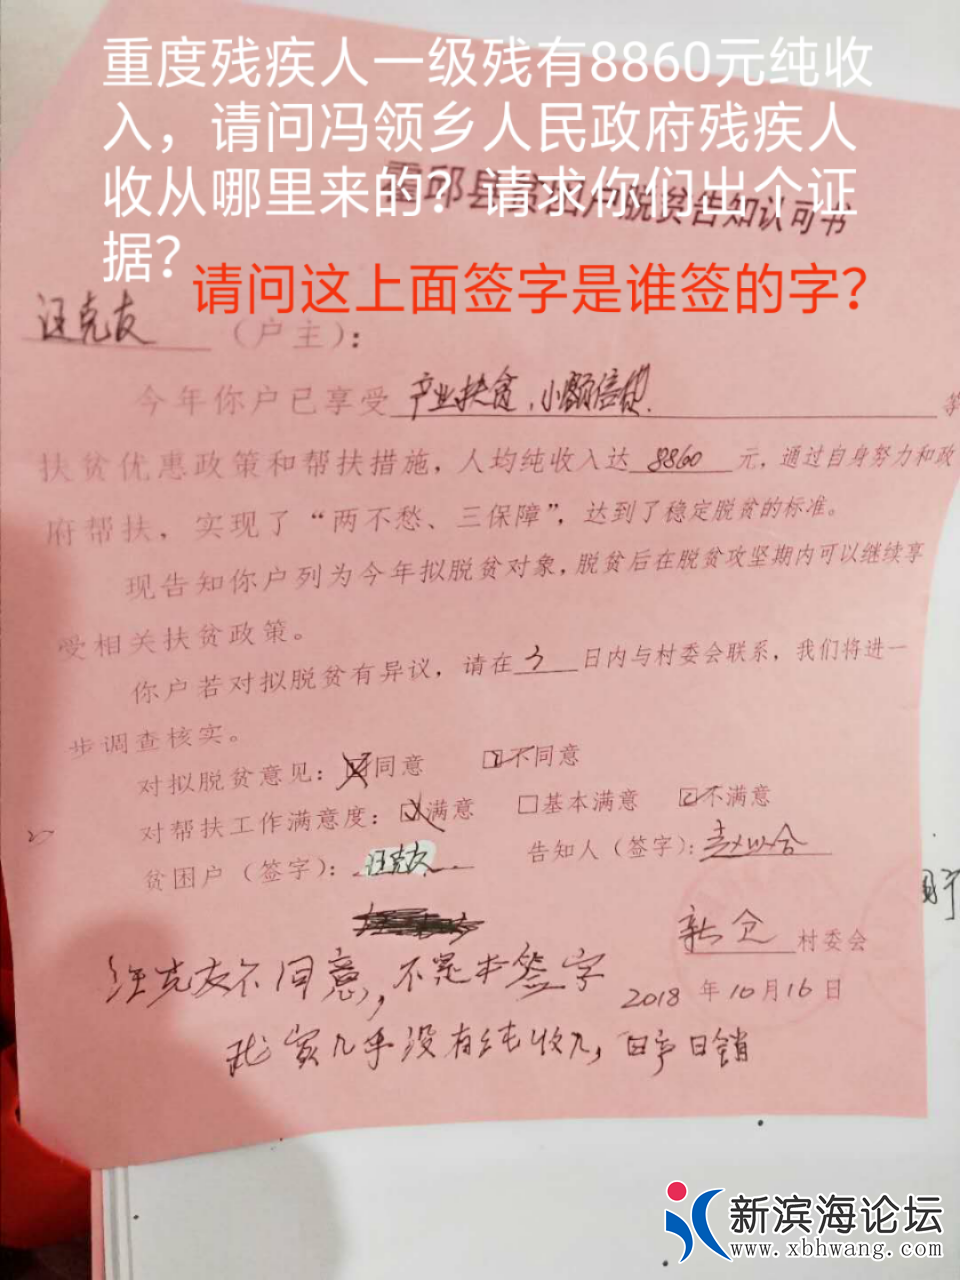 重度残疾人一级残有8860元纯收
入，请问冯领乡人民政府残疾人
收从哪里来的？请求你们出个证
据？
请问这上面签字是谁签的字？
霍邱县贫困户脱贫告知认可书
汪克友（户主）：
今年你户已享受产业扶贫．小额信贷．等
扶贫优惠政策和帮扶措施，人均纯收入达8860元，通过自身努力和政
府帮扶，实现了“两不愁、三保障”，达到了稳定脱贫的标准。
现告知你户列为今年拟脱贫对象，脱贫后在脱贫攻坚期内可以继续享
受相关扶贫政策。
你户若对拟脱贫有异议，请在3日内与村委会联系，我们将进一
步调查核实。
对拟脱贫意见：☑同意 ☑不同意
对帮扶工作满意度：☑满意 □基本满意 ☑不满意
贫困户（签字）：汪克友 告知人（签字）：
新仓村委会
汪克友不同意，不是本签字
2018年10月16日
我家几乎没有纯收入，日产日销
新滨海论坛
www.xbhwang.com